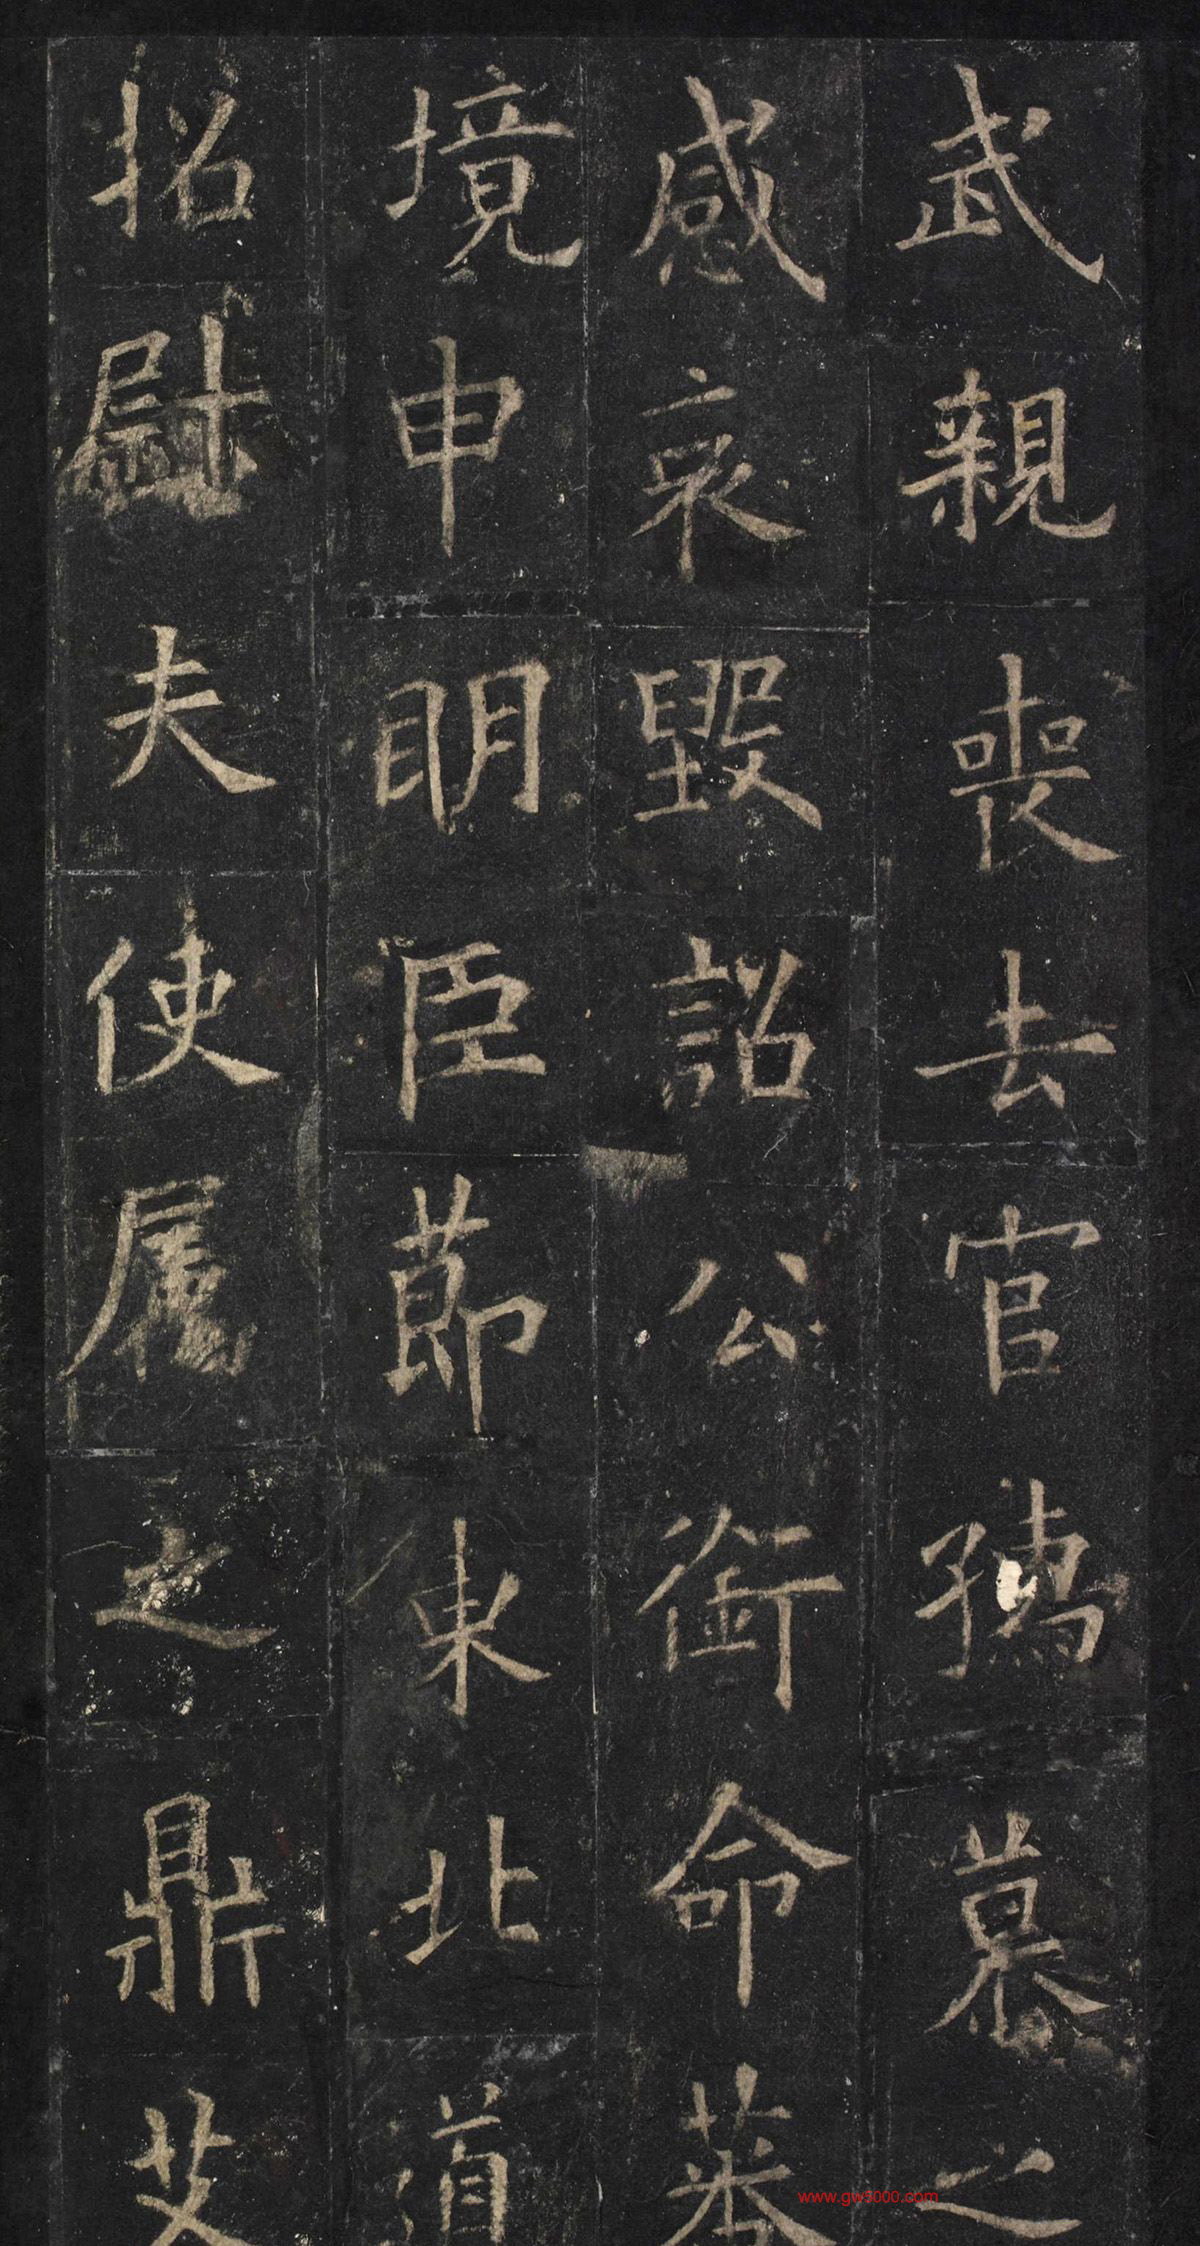 武親喪去官孺慕之
感哀毀詔公銜命蕃
境申明臣節東北道
招慰大使屬之鼎艾
www.gw5000.com